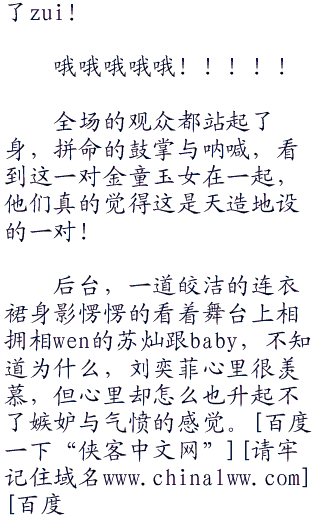 了zui！
哦哦哦哦哦！！！！！
全场的观众都站起了
身，拼命的鼓掌与呐喊，看
到这一对金童玉女在一起，
他们真的觉得这是天造地设
的一对！
后台，一道皎洁的连衣
裙身影愣愣的看着舞台上相
拥相wen的苏灿跟baby，不知
道为什么，刘奕菲心里很羡
慕，但心里却怎么也升起不
了嫉妒与气愤的感觉。[百度
一下“侠客中文网”][请牢
记住域名www.chinalww.com]
[百度